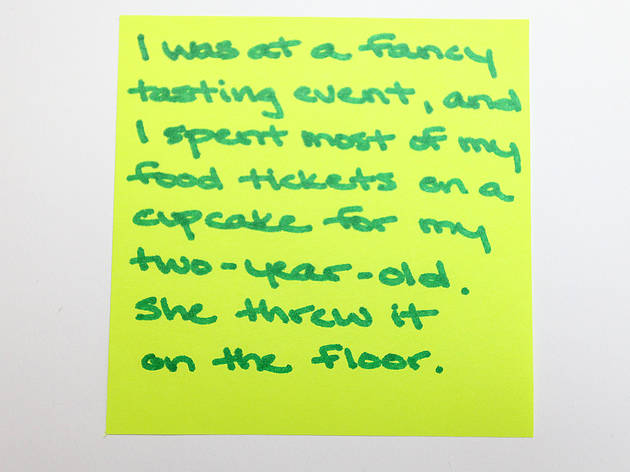 I was at a fancy
tasting event, and
I spent most of my
food tickets on a
cupcake for my
two-year-old.
She threw it
on the floor.